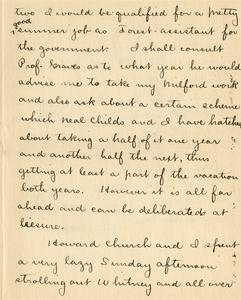 two I would be qualified for a pretty
good
summer job as Forest-assistant for
the government. I shall consult
Prof. Graves as to what year he would
advise me to take my Milford work
and also ask about a certain scheme
which Neal Childs and I have hatched
about taking a half of it one year
and another half the next, thus
getting at least a part of the vacation
both years. However it is all far
ahead and can be deliberated at
leisure.
Howard Church and I spent
a very lazy Sunday afternoon
strolling out Whitney and all over